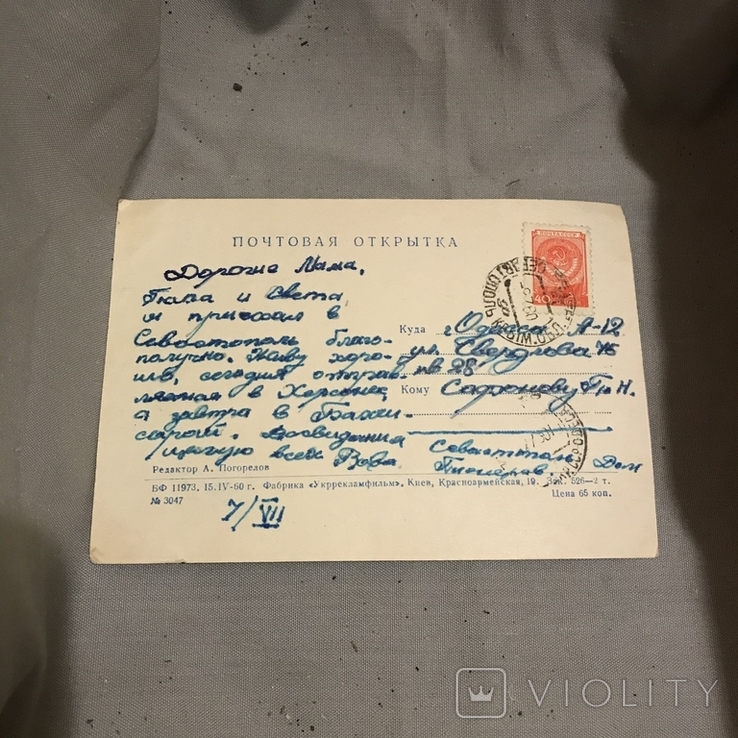 ПОЧТОВАЯ ОТКРЫТКА
ПОЧТА СССР
40
Дорогие Мама,
Гюла и Света
я приехал в
Севастополь благо-
получно. Живу хоро-
шо, сегодня отправ-
ляемся в Херсонес
а завтра в Бахчи-
сарай. Досвидания
целую всех Вова
Куда г. Одесса А-12
ул. Свердлова 76
кв 28
Кому Сафонову Г. Н.
Севастополь Дом
Пионеров.
Редактор А. Погорелов
БФ 11973. 15.IV-60 г. Фабрика «Укррекламфильм», Киев, Красноармейская, 19. Зак. 626—2 т.
№ 3047
Цена 65 коп.
7/VII
VIOLITY